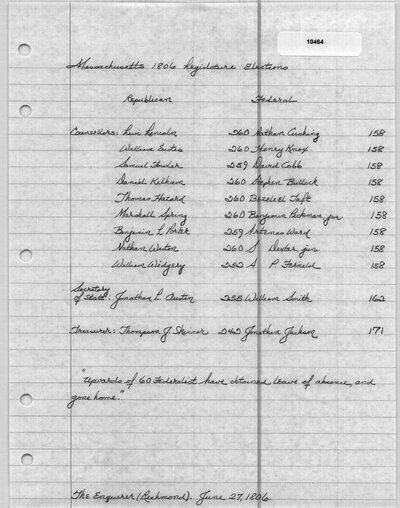 10464
Massachusetts 1806 Legislature Elections
Republican Federal
Counsellors: Levi Lincoln 260 Nathan Cushing 158
William Eustis 260 Henry Knox 158
Samuel Fowler 259 David Cobb 158
Daniel Kilham 260 Stephen Bullock 158
Thomas Hazard 260 Bezeleel Taft 158
Marshall Spring 260 Benjamin Pickman jur 158
Benjamin L Porter 259 Artemas Ward 158
Nathan Weston 260 S Dexter, jun 158
William Widgery 252 A P Fernald 158
Secretary
of State: Jonathan L Austin 255 William Smith 162
Treasurer: Thompson J Skinner 242 Jonathan Jackson 171
"Upwards of 60 Federalist have obtained leave of absence, and
gone home."
The Enquirer (Richmond). June 27, 1806.